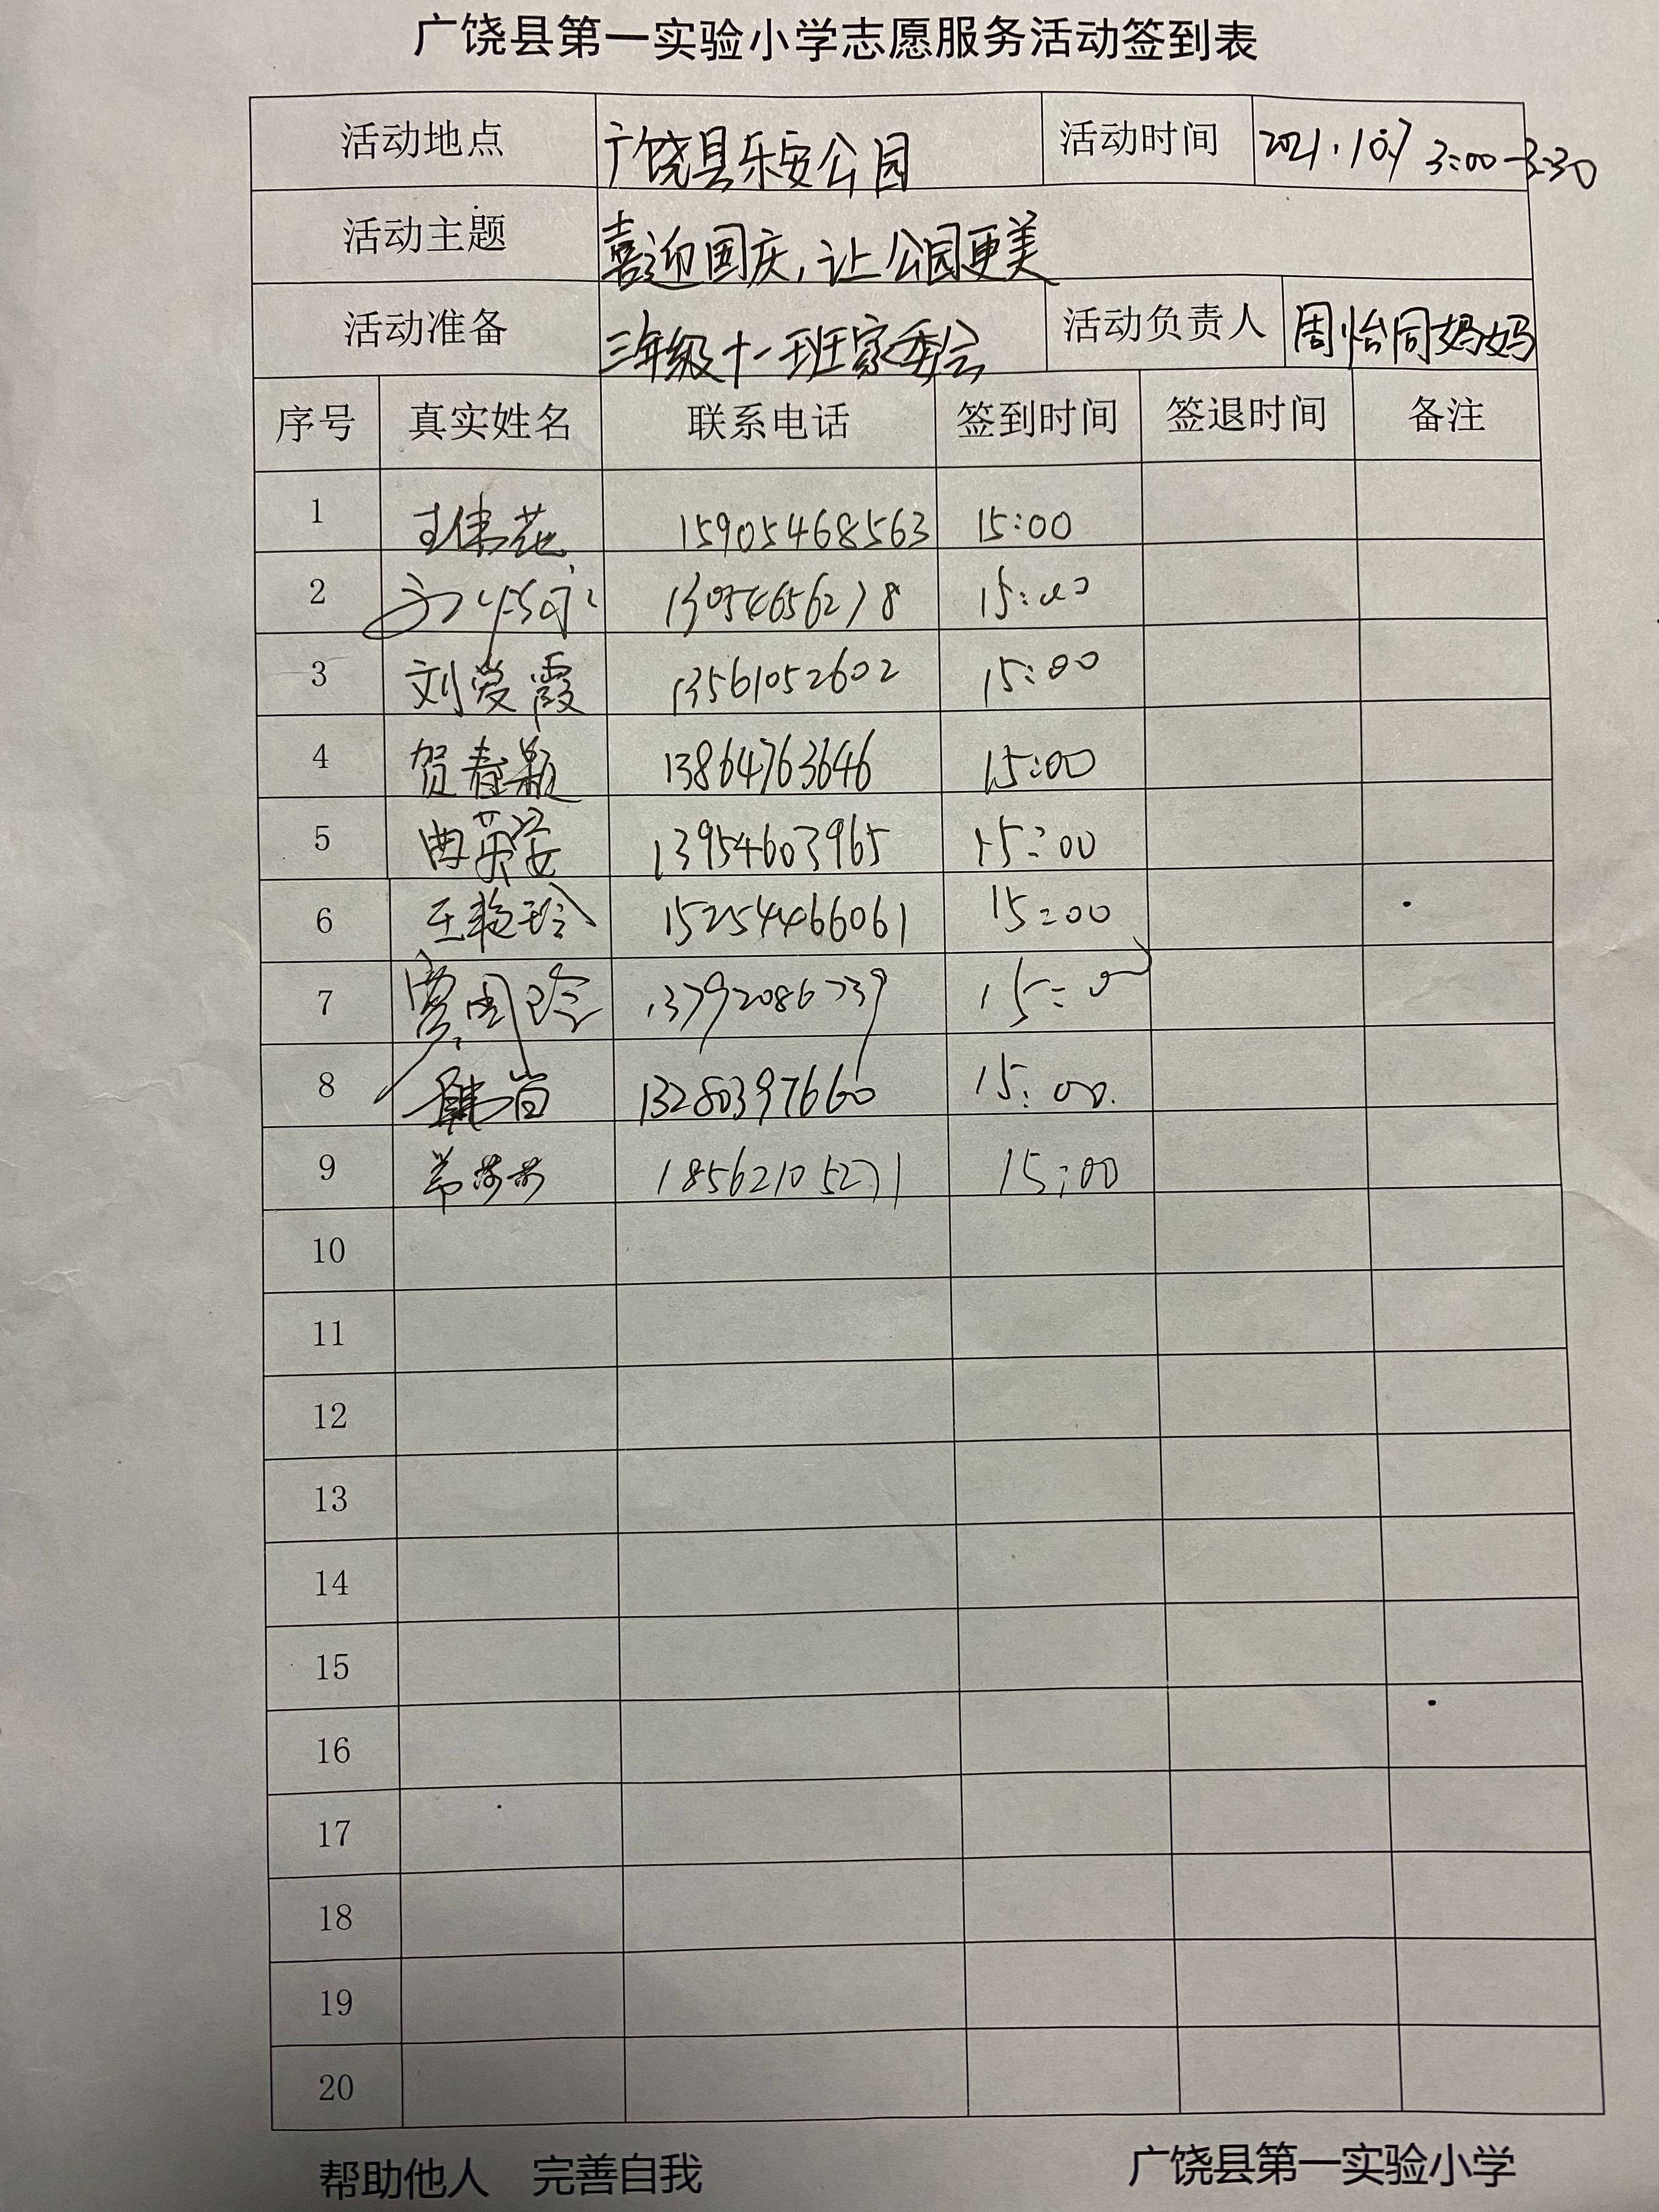 广饶县第一实验小学志愿服务活动签到表
活动地点 广饶县乐安公园 活动时间 2021.10.7 3:00-3:30
活动主题 喜迎国庆,让公园更美
活动准备 三年级十一班家委会 活动负责人 周怡同妈妈
序号 真实姓名 联系电话 签到时间 签退时间 备注
1 15905468563 15:00
2 13054656278 15:00
3 刘爱霞 13561052602 15:00
4 贺春颖 13864763646 15:00
5 曲英姿 13954603965 15:00
6 王艳玲 15254466061 15:00
7 13792086739 15:00
8 13280397660 15:00.
9 18562105271 15:00
10
11
12
13
14
15
16
17
18
19
20
帮助他人 完善自我 广饶县第一实验小学